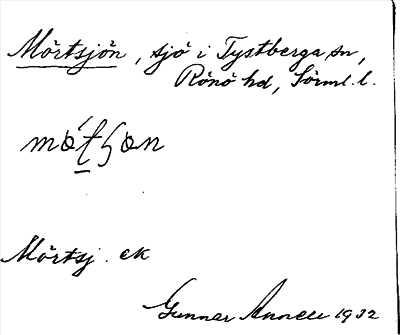 Mörtsjön, sjö i Tystberga sn,
Rönö hd, Sörml. l.
Mörtsj. ek
Gunnar Annell 1932